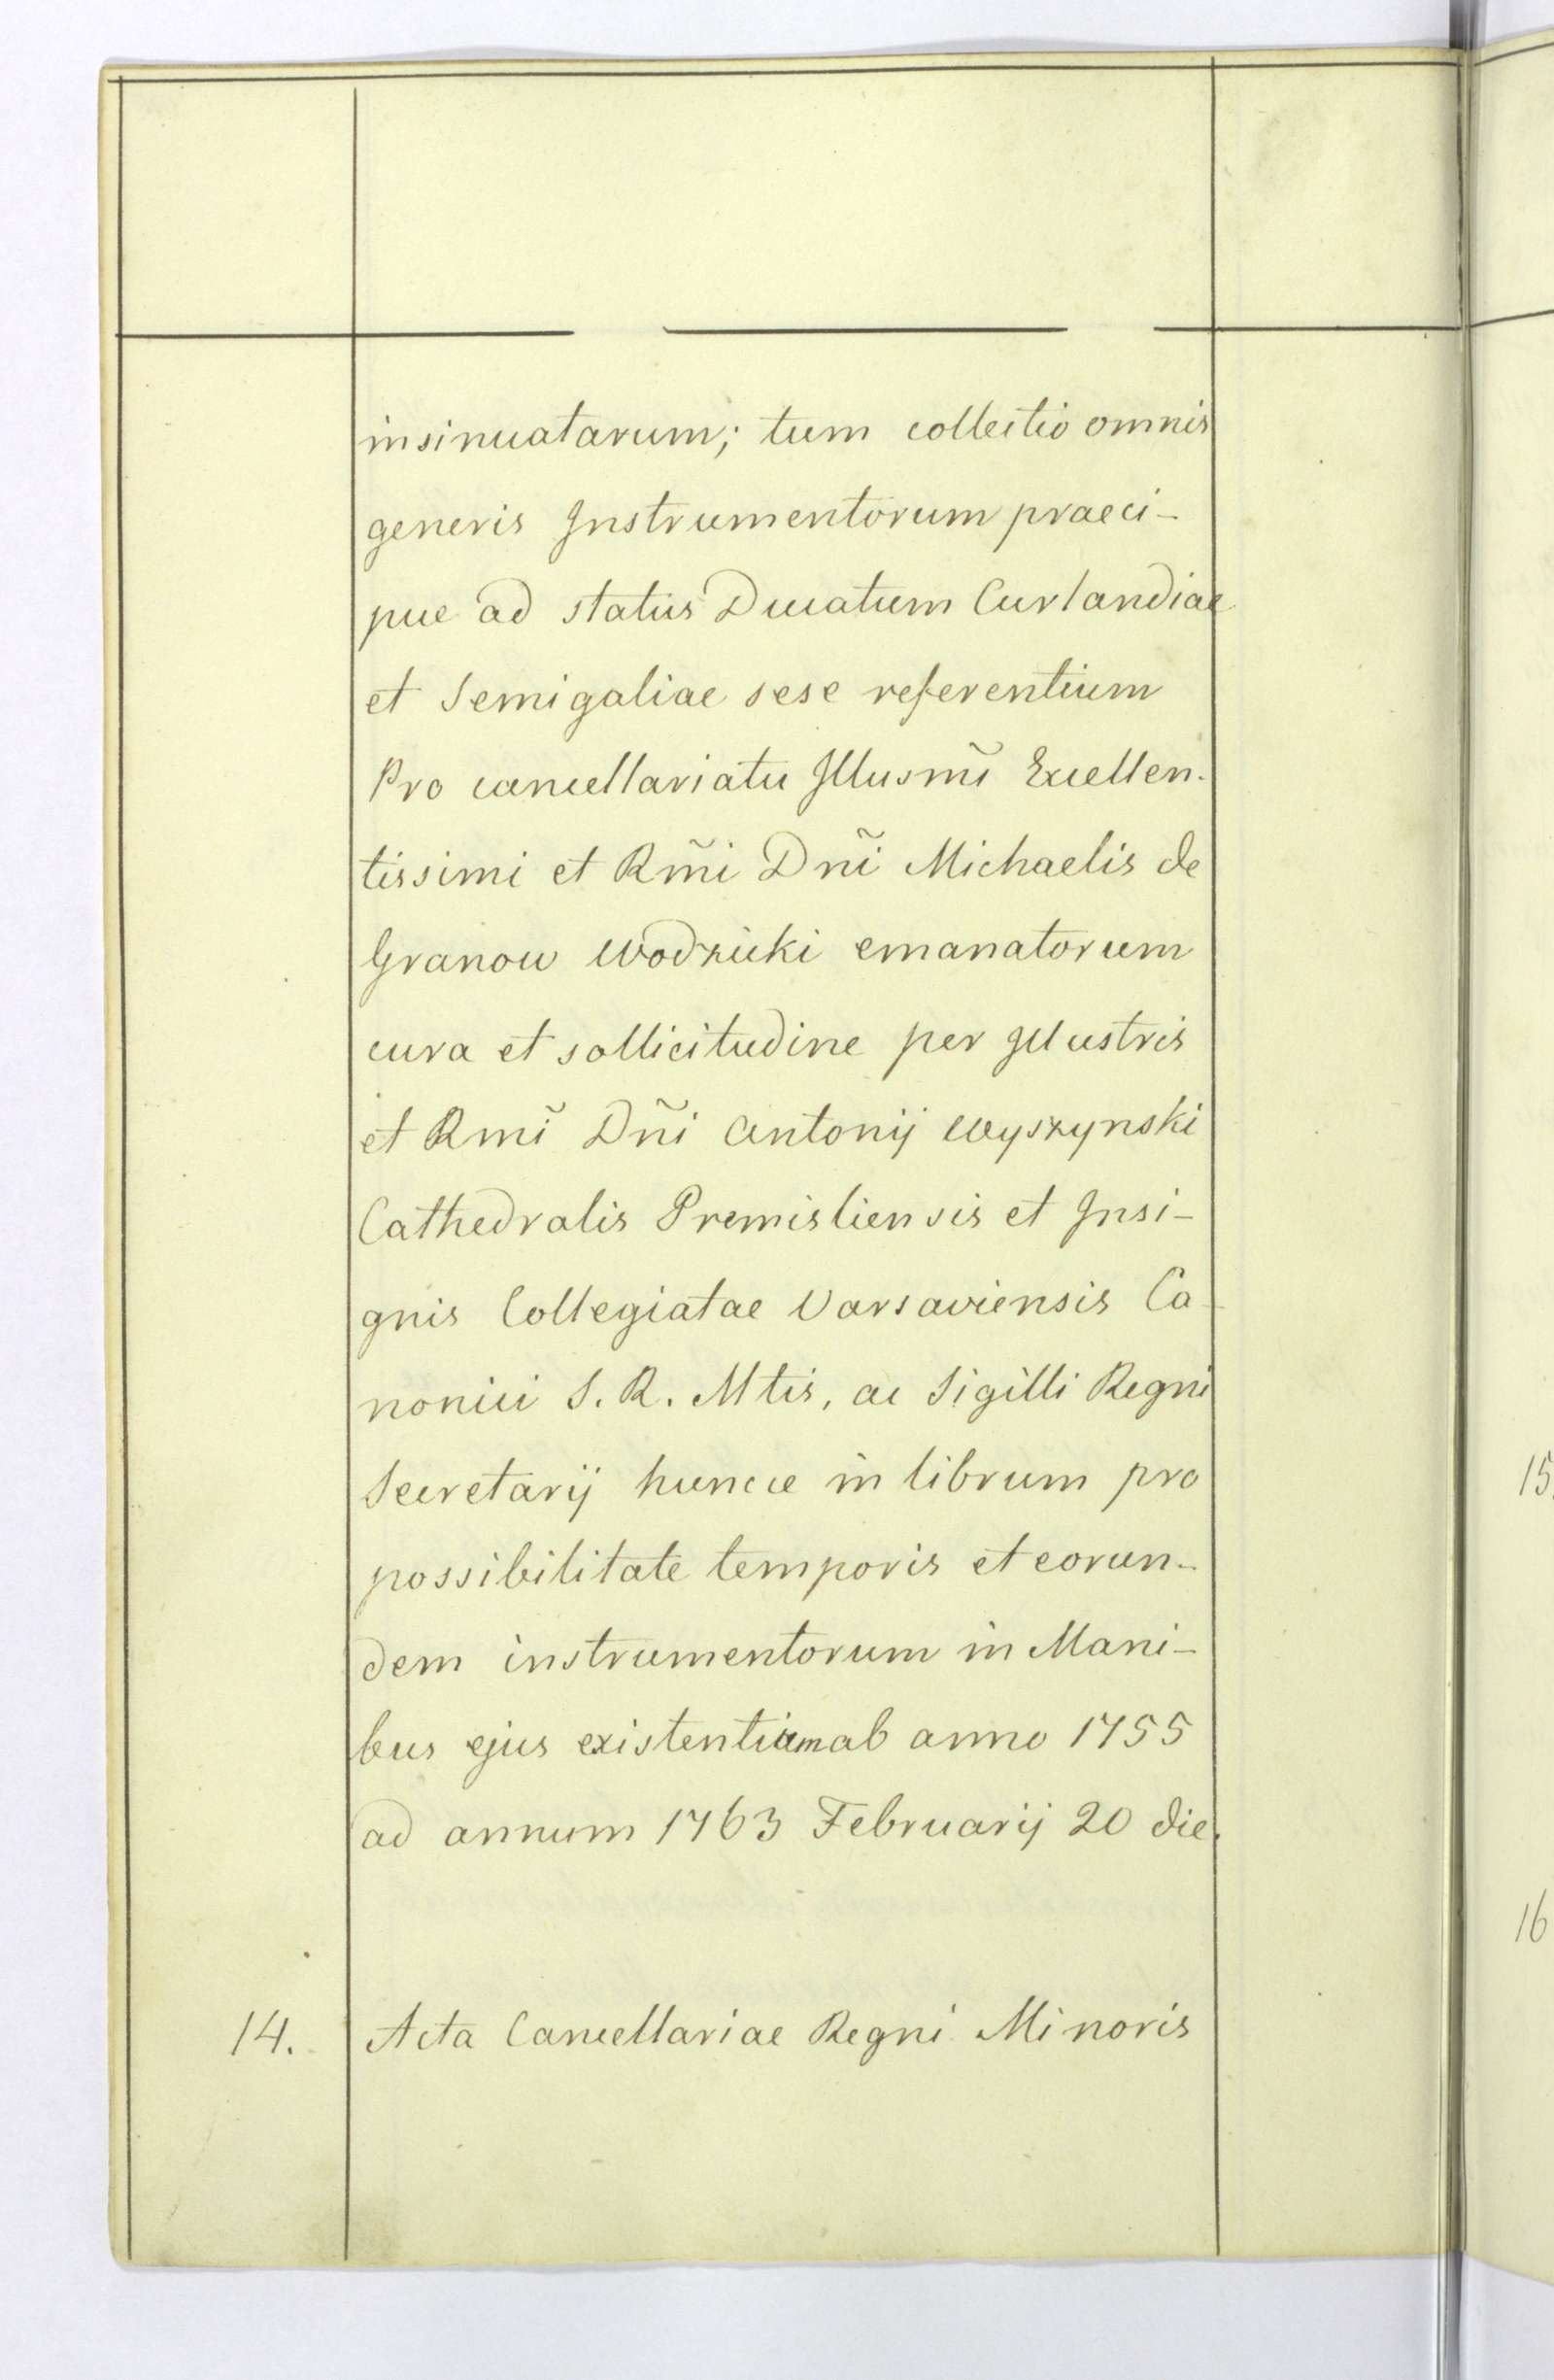 insinuatarum; tum collectio omnis
generis Instrumentorum praeci-
pue ad status Ducatum Curlandiae
et Semigaliae sese referentium
Pro cancellariatu Illusm̃i Excellen-
tissimi et Rm̃i Dñi Michaelis de
Granow Wodzicki emanatorum
cura et sollicitudine per Illustris
et Rmĩ Dñi Antonij Wyszynski
Cathedralis Premisliensis et Insi-
gnis Collegiatae Varsaviensis Ca-
nonici S. R. Mtis, ac Sigilli Regni
Secretarij huncce in librum pro
possibilitate temporis et eorun-
dem instrumentorum in Mani-
bus ejus existentium ab anno 1755
ad annum 1763 Februarij 20 die.
14. Acta Cancellariae Regni Minoris
15.
16